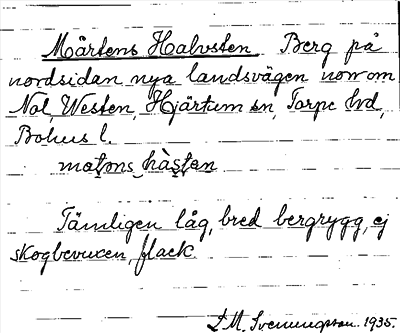 Mårtens Halvsten Berg på
nordsidan nya landsvägen norr om
Nol, Westen, Hjärtum sn, Torpe hd,
Bohus l.
matons hàstan
Tämligen låg, bred bergrygg, ej
skogbevuxen, flack.
D. M. Svenungsson. 1935.